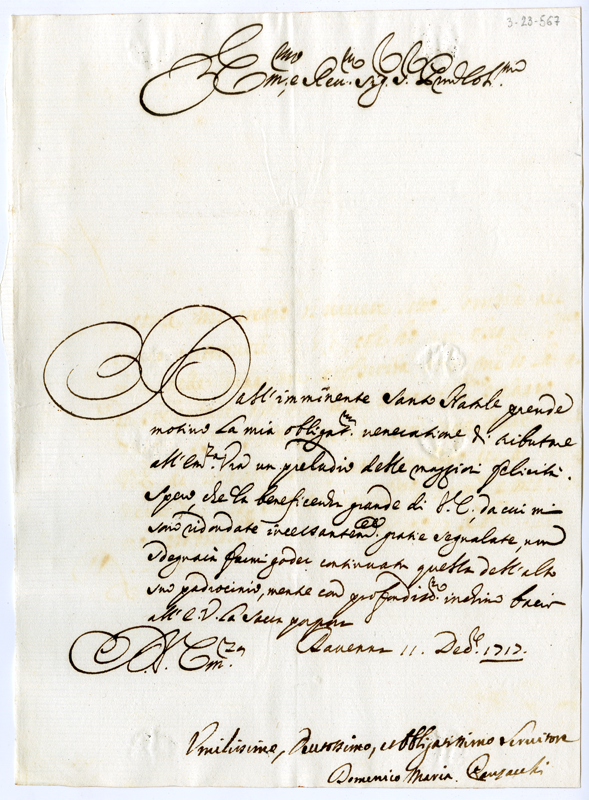 3-23-567
Em.mo e Reu.mo Sig.r P.
Dall'imminente Santo Natale prende
motivo la mia obligat.ma veneratione di tributare
all'Em.za Vra un preludio delle maggiori felicità.
Spero, che la beneficenza grande di V.E., da cui mi
sono ridondate incessantem.te gratie segnalate, non
sdegnarà farmi goder continuata quella dell'alto
suo padrocinio, mentre con profondiss.mo inchino bacio
all'E.V. la Sacra porpora
V. Em.za Ravenna 11. Dec.re 1717.
Umilissimo, Deuotissimo, et obligatissimo Seruitore
Domenico Maria